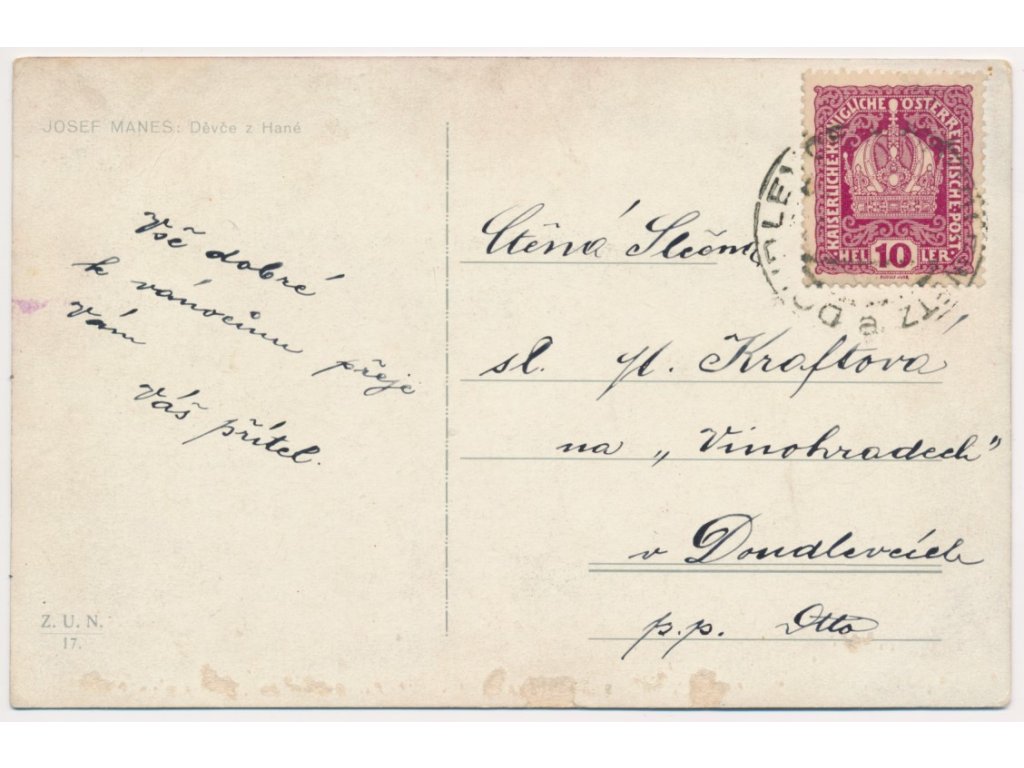 JOSEF MANES: Děvče z Hané
Vše dobré
k vánocům přeje
Vám
Váš přítel.
Z. U. N.
17.
KAISERLICHE·KÖNIGLICHE ÖSTERREICHISCHE·POST
HEL 10 LER
Ctěná Slečna
sl. Kraftova
na „Vinohradech"
v Doudlevcích
p.p. Otto